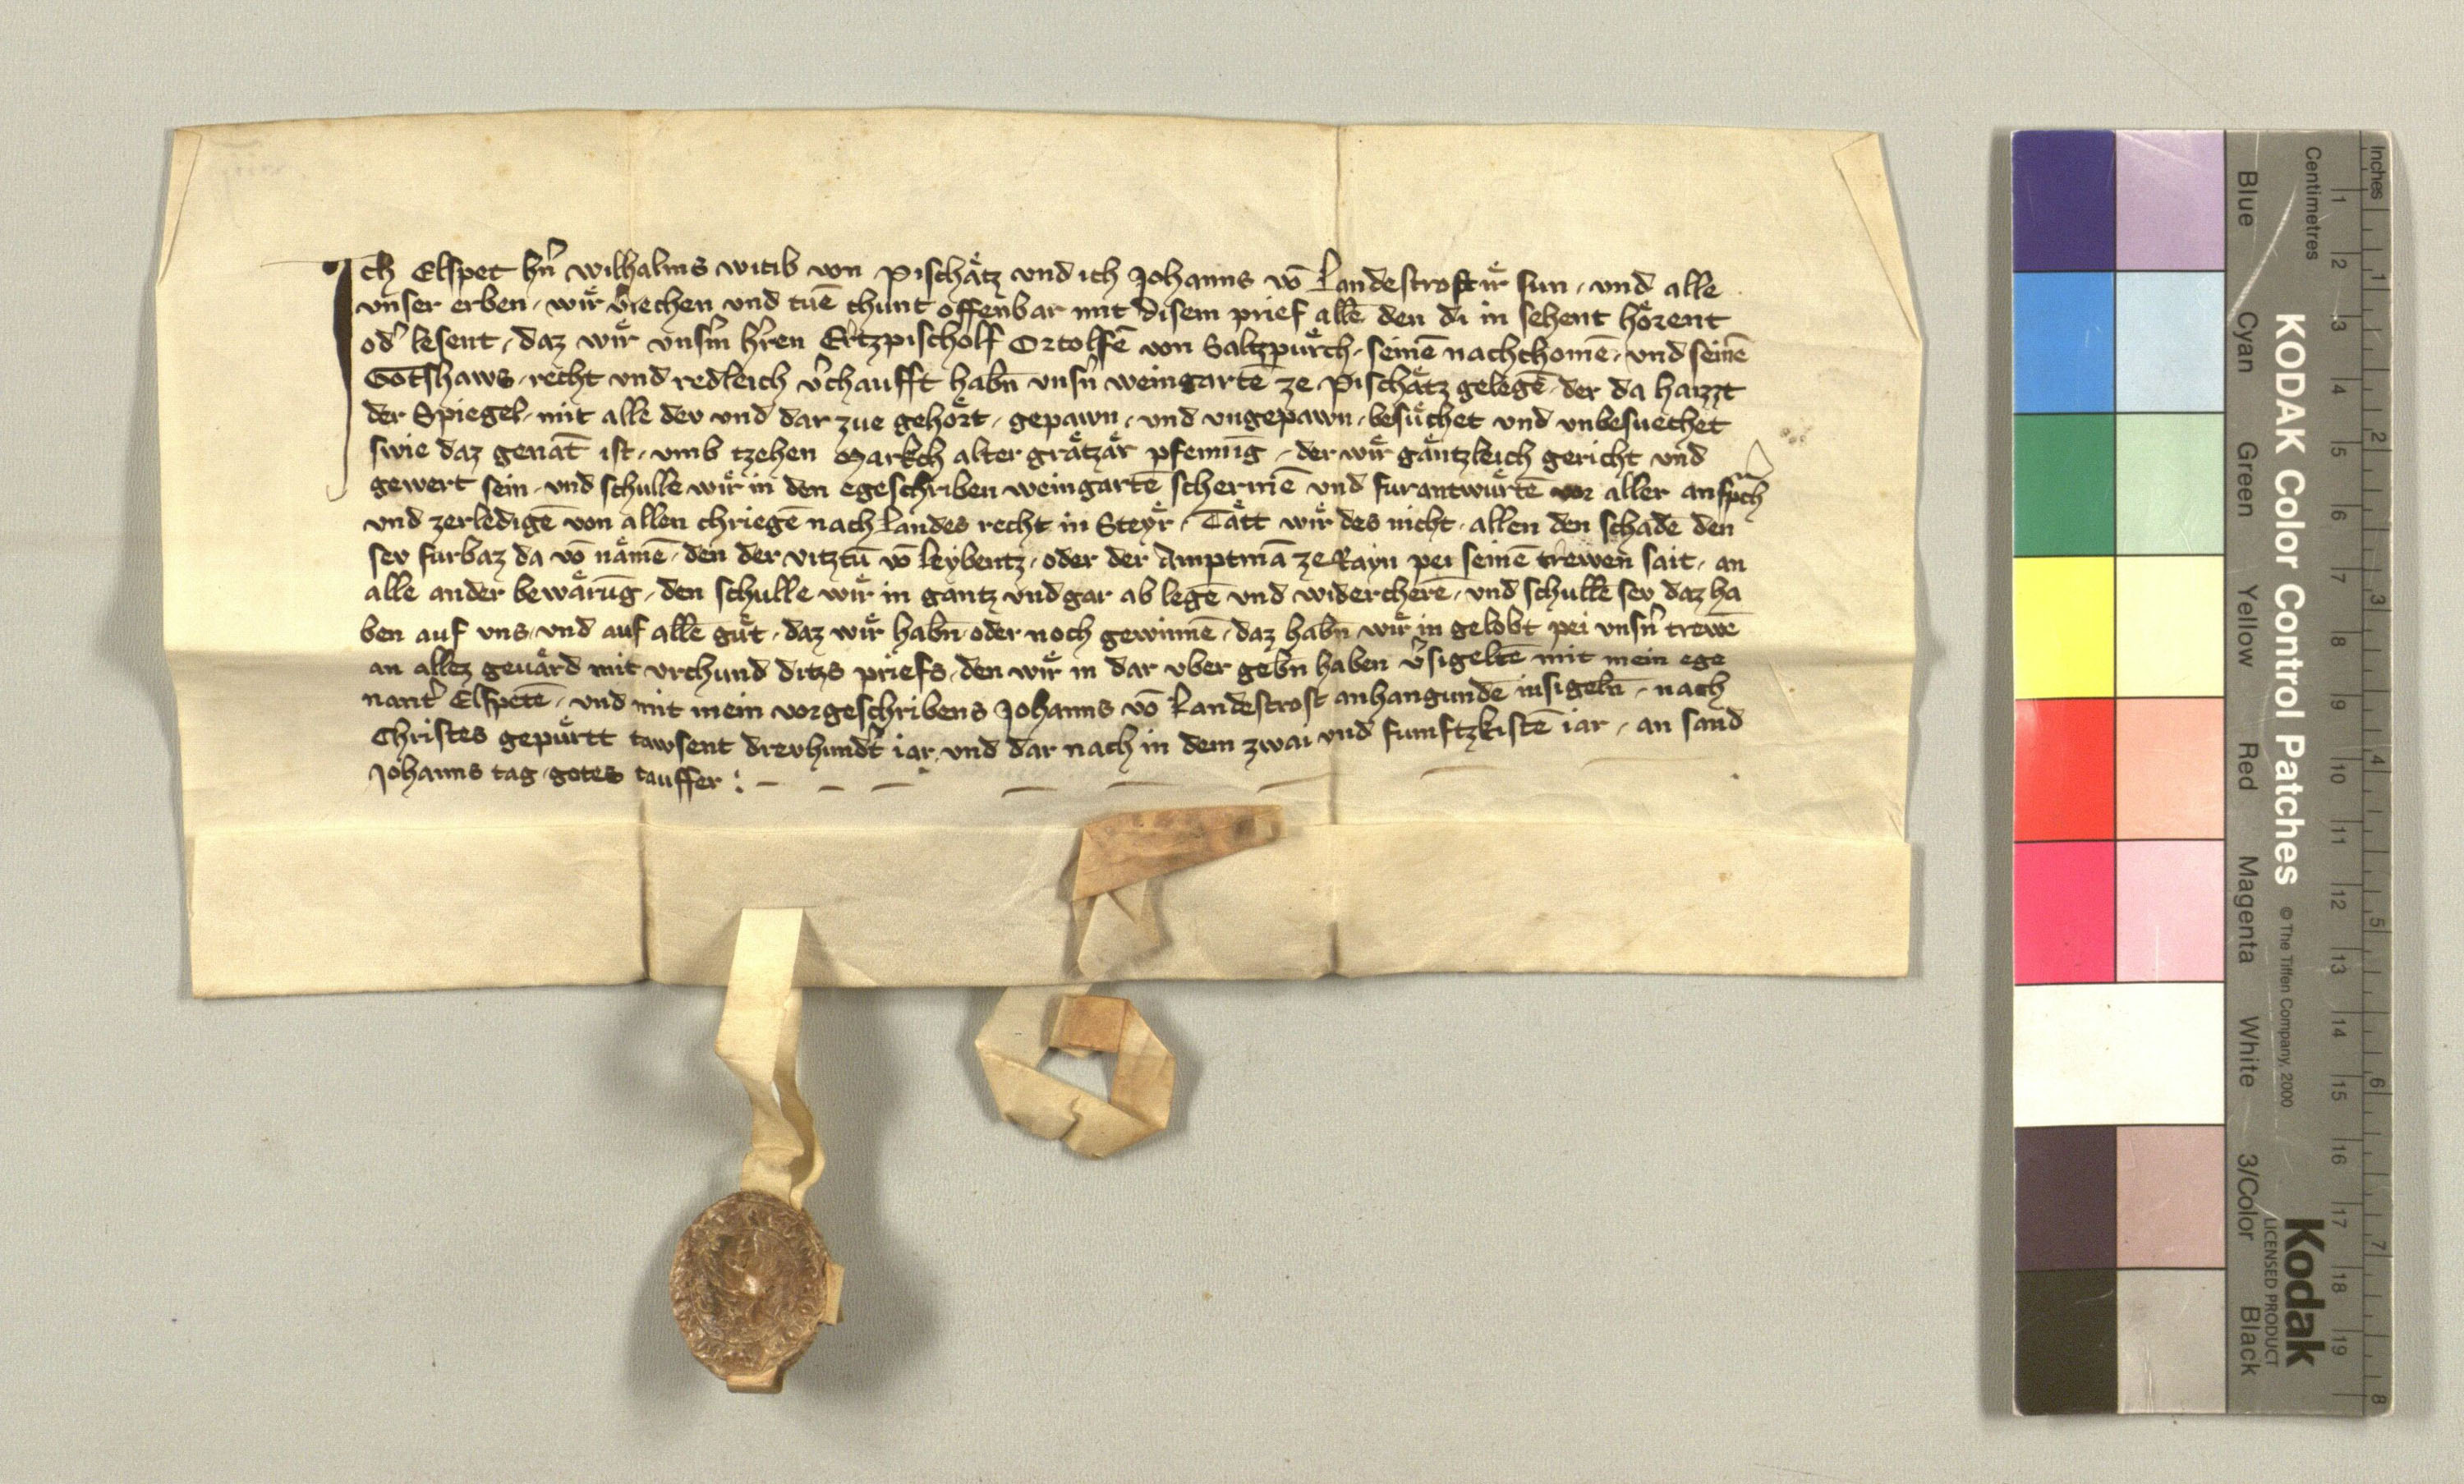 Ich Elspet hn̄ wilhalms witib von Pischaͤtz und ich Johanns vō Landestrost ir̈ sun, und alle
vnser erben, wir̈ v̓iechen und tuē chunt offenbar mit disem prief allē den di in sehent hoͤrent
od̓ lesent, daz wir̈ vnsm̓ hr̓en Ertzpischolf Ortolfē von Saltzpuͤrch, seinē nachchomē, und seinē
Gotshaws, recht und redleich v̓chaufft habn̄ vnsn̓ weingartē ze Pischaͤtz gelegē, der da haizzt
der Spiegel, mit alle dev und dar zue gehoͤrt, gepawn, und ungepawn, besuͤchet und unbesuechet
swie daz genāt ist, umb tzehen Markch alter graͤtzaͤr pfennīg, der wir̈ gaͤntzleich gericht und
gewert sein, und schullē wir̈ in den egeschriben weingartē schermē und furantwuͤrtē vor aller ansp̄ch
und zerledigē von allen chriegē nach Landes recht in Steyr̈, Taͤtt wir̈ des nicht, allen den schadē den
sev furbaz da vō naͤmē, den der vitztū vō Leybentz, oder der Amptmā ze Rayn pei seinē trewen sait, an
alle ander bewaͤrūg, den schulle wir̈ in gantz und gar ab legē und widercherē, und schullē sev daz ha
ben auf uns, und auf allē guͤt, daz wir̈ habn̄ oder noch gewinnē, daz habn̄ wir̈ in gelobt pei vnsn̓ trewē
an allez geuaͤrd mit vrchund ditzs priefs, den wir̈ in dar uber gebn̄ haben v̓sigeltē mit mein ege
nant̓ Elspetē, und mit mein vorgeschribens Johanns vō Landestrost anhangundē insigeln̄, nach
Christes gepuͤrtt tawsent drevhundt̓ iar, und dar nach in dem zwai und fumftzkistē iar, an sand
Johanns tag, gotes tauffer :
KODAK Color Control Patches © The Tiffen Company, 2000
Kodak
LICENSED PRODUCT
Inches 1 2 3 4 5 6 7 8
Centimetres 1 2 3 4 5 6 7 8 9 10 11 12 13 14 15 16 17 18 19
Blue Cyan Green Yellow Red Magenta White 3/Color Black